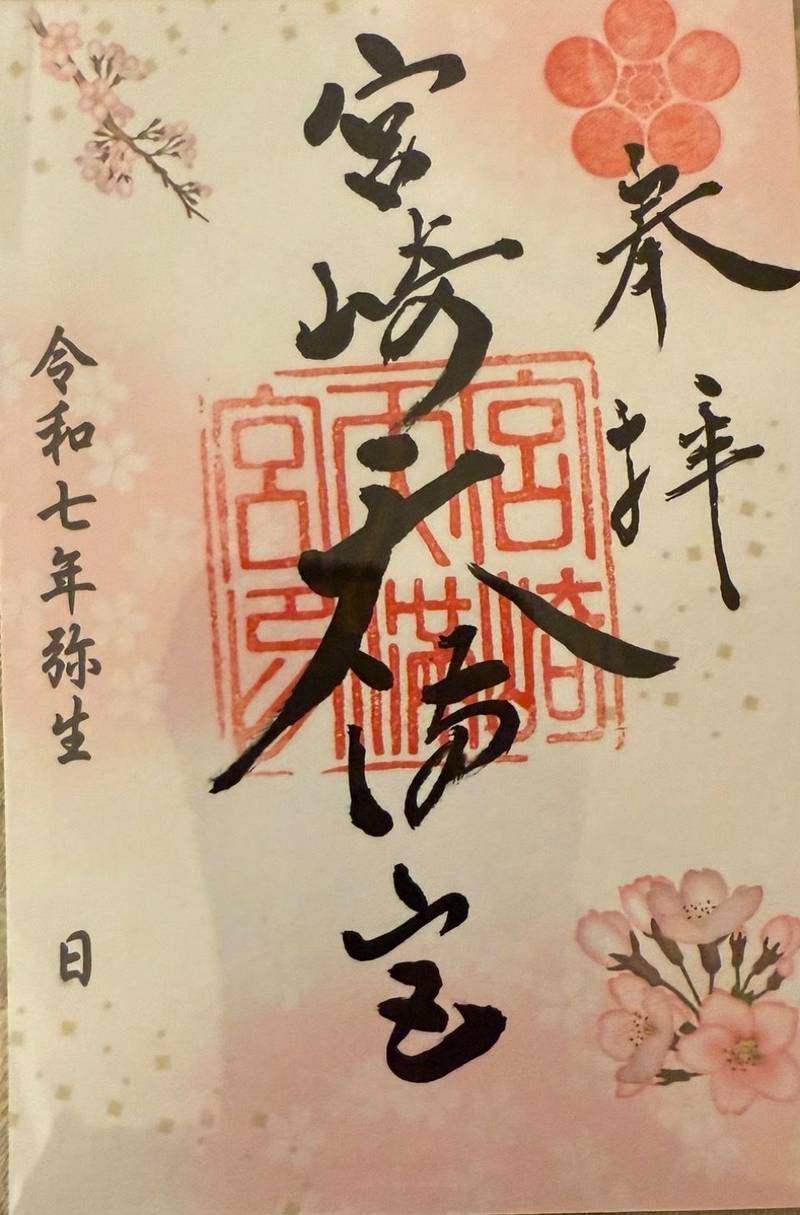 奉拝
宮崎天満宮
宮崎
天満
宮印
令和七年弥生 日